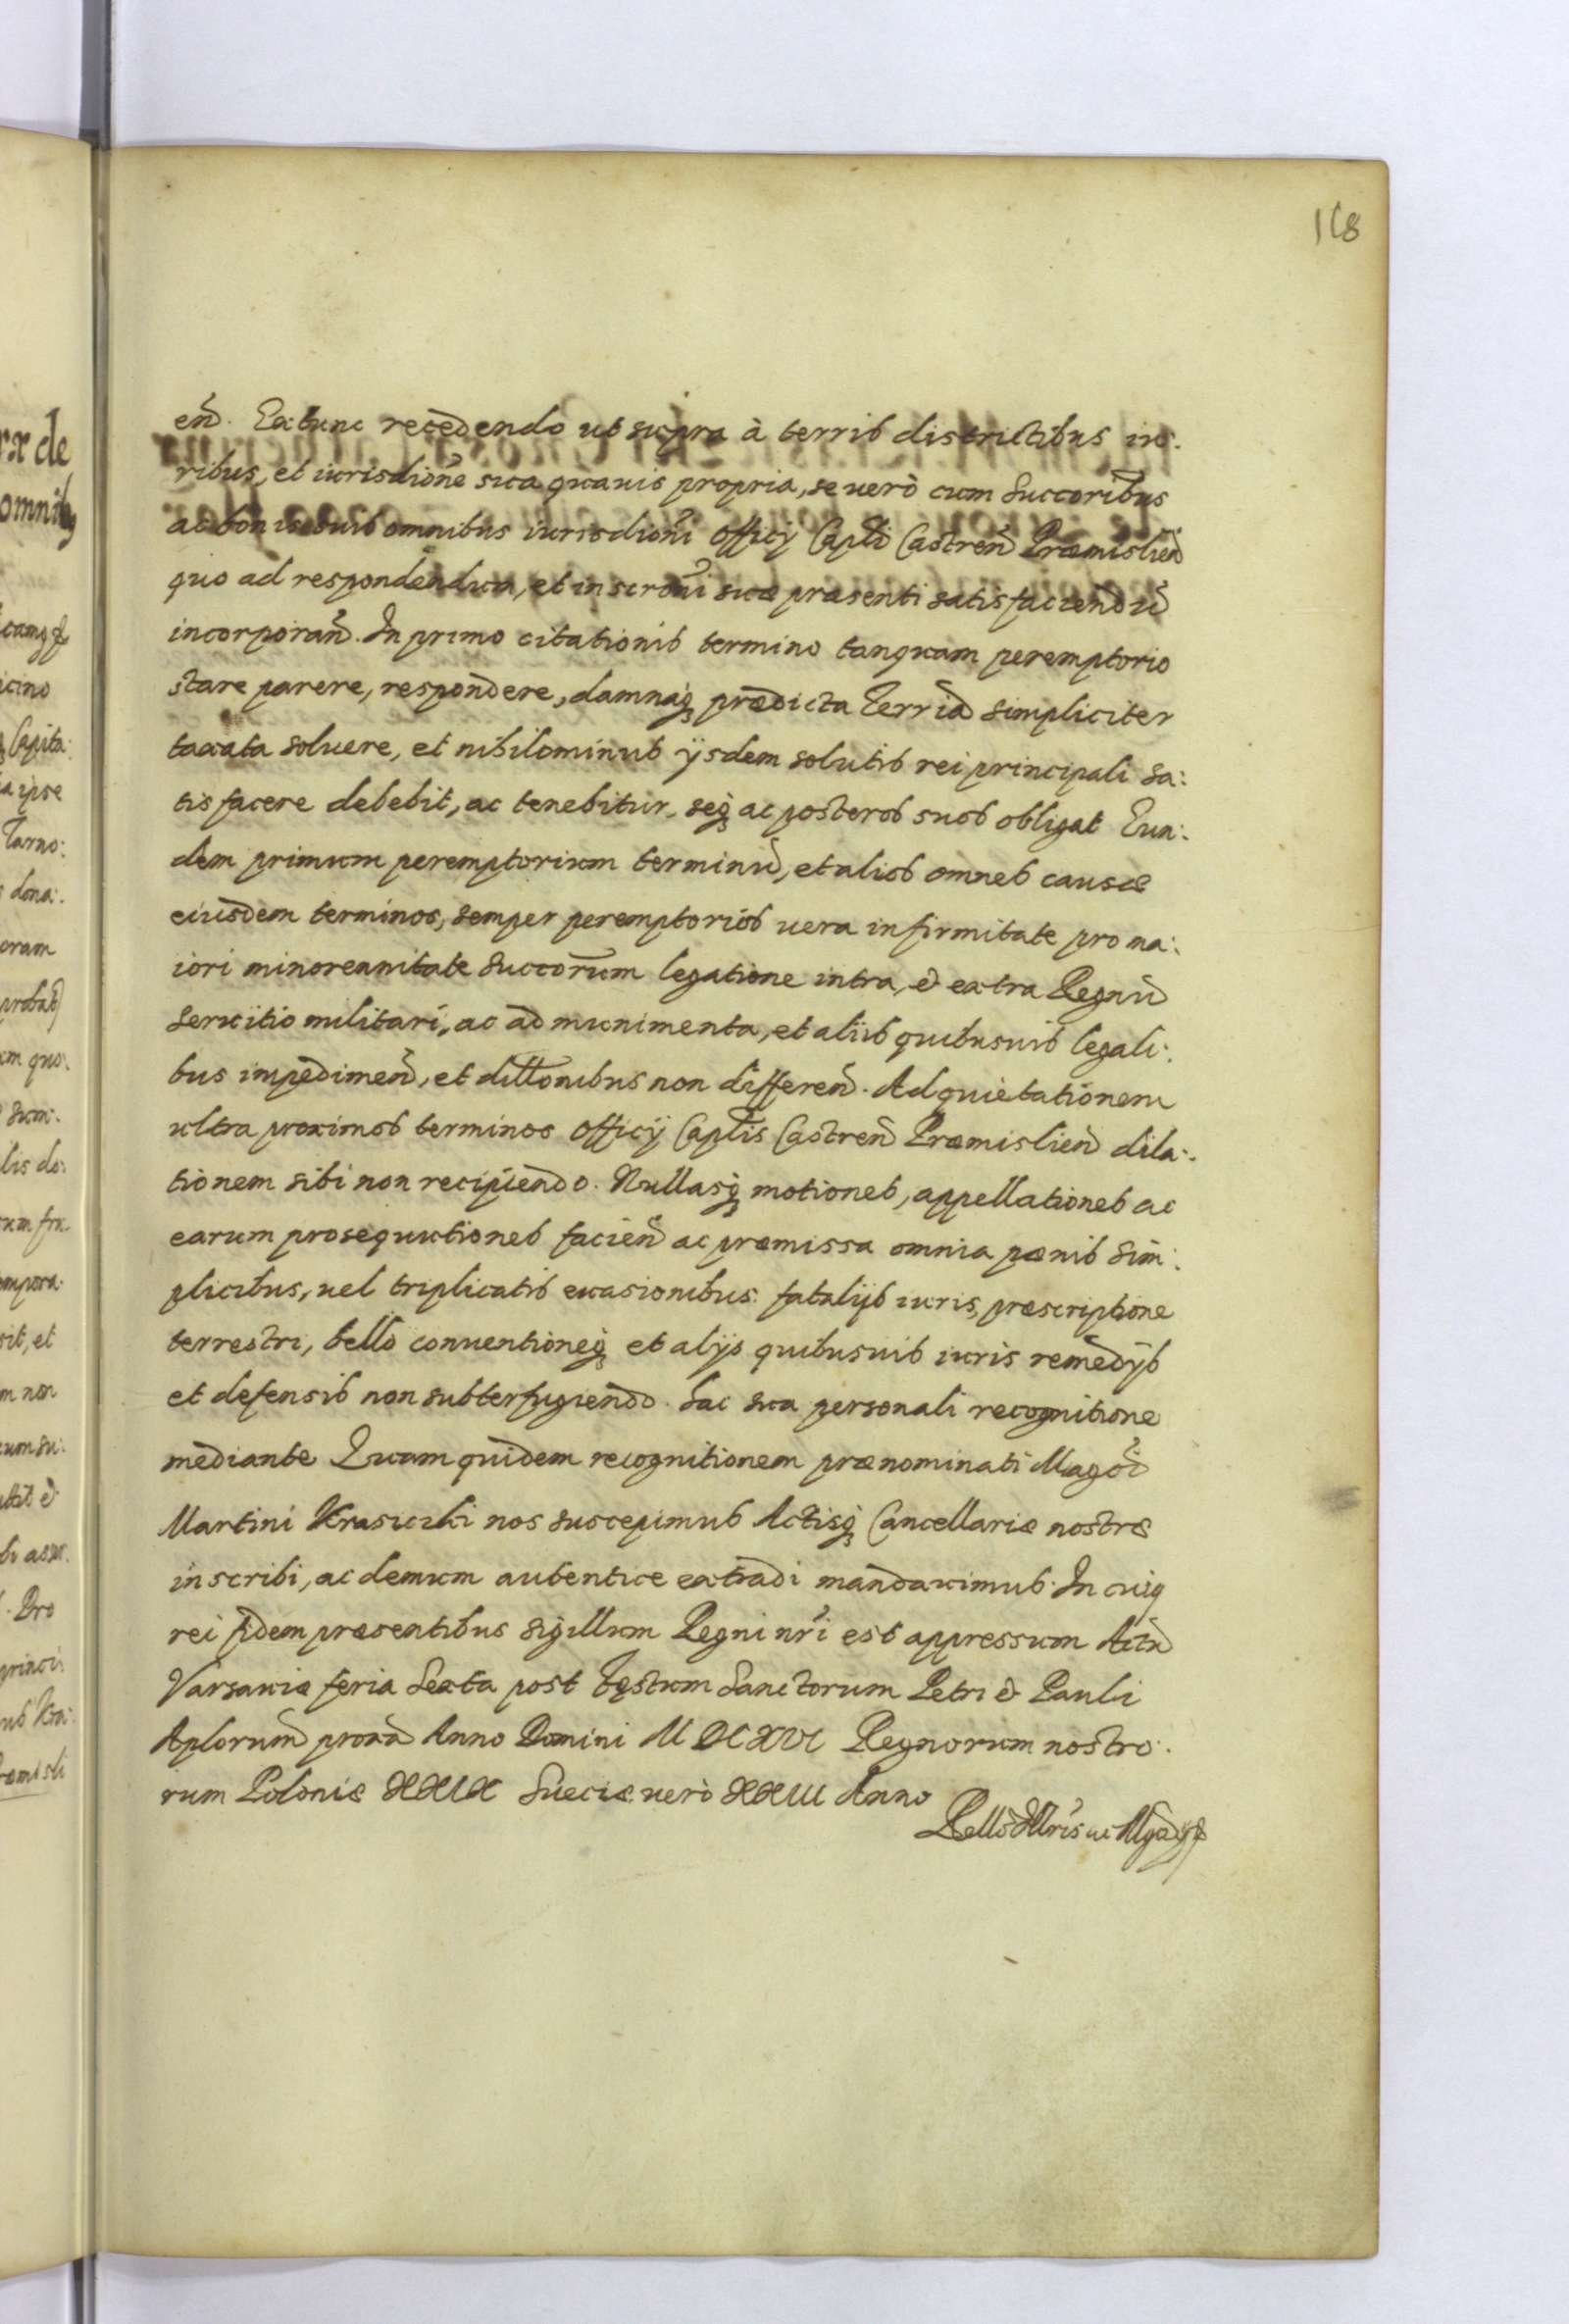 168
end. Ex tunc recedendo ut supra à terris districtibus iu:
ribus, et iurisdione sua quauis propria, se uerò cum Succoribus
ac bonis suis omnibus iurisdioni Officij Capli Castren Præmislien
quo ad respondendum, et inscroni suæ præsenti satisfaciendũ
incorporan. In primo citationis termino tanquam peremptorio
stare parere, respondere, damnaq prædicta Terrið simpliciter
taxata soluere, et nihilominus ijsdem solutis rei principali sa:
tisfacere debebit, ac tenebitur, seq ac posteros suos obligat Eun:
dem primum peremptorium terminũ, et alios omnes causæ
eiusdem terminos, semper peremptorios uera infirmitate pro ma:
iori minorennitate Succorum legatione intra, & extra Regnũ
Seruitio militari, ac ad munimenta, et alijs quibusuis legali:
bus impedimen, et dillonibus non differen. Ad quietationem
ultra proximos terminos Officij Caplis Castren Præmislien dila:
tionem sibi non recipiendo. Nullasq motiones, appellationes ac
earum prosequutiones facien ac præmissa omnia pænis sim:
plicibus, uel triplicatis euasionibus fatalijs iuris, præscriptione
terrestri, bello conuentioneq et alijs quibusuis iuris remedijs
et defensis non subterfugiendo. hac sua personali recognitione
mediante Quam quidem recognitionem prænominati Magci
Martini Krasiczki nos suscepimus Actisq Cancellariæ nostræ
inscribi, ac demum autentice extradi mandauimus. In cuiq
rei fidem præsentibus sigillum Regni nri est appressum Actũ
Varsauiæ feria Sexta post Festum Sanctorum Petri & Pauli
Aplorum proxa Anno Domini MDCXVI Regnorum nostro:
rum Poloniæ XXIX Sueciæ uerò XXIII Anno